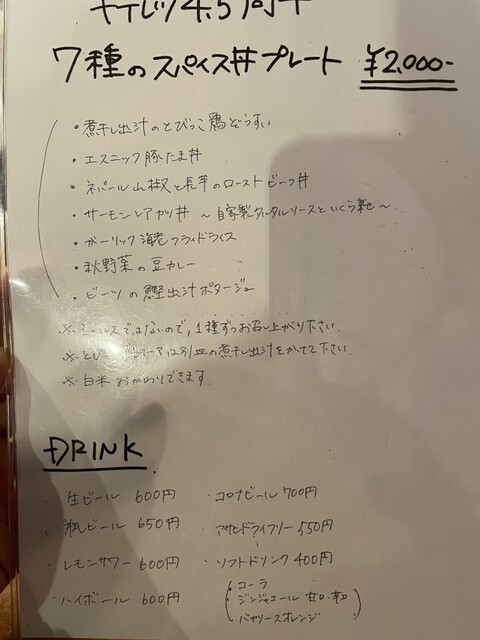 7種のスパイス丼プレート ¥2,000-
・煮干し出汁のとびっこ鶏ぞうすい
・エスニック豚たま丼
・ネパール山椒と長芋のローストビーフ丼
・サーモンレアカツ丼 〜自家製タルタルソースといくら乗せ〜
・ガーリック海老フライドライス
・秋野菜の豆カレー
・ビーツの鰹出汁ポタージュ
※ミールスではないので、1種ずつお召し上がり下さい.
は別皿の煮干し出汁をかけて下さい.
※白米おかわりできます.
DRINK
・生ビール 600円
・コロナビール 700円
・瓶ビール 650円
・アサヒドライフリー 550円
・レモンサワー 600円
・ソフトドリンク 400円
・ハイボール 600円
・コーラ
・ジンジャエール 甘口・辛口
・バヤリースオレンジ